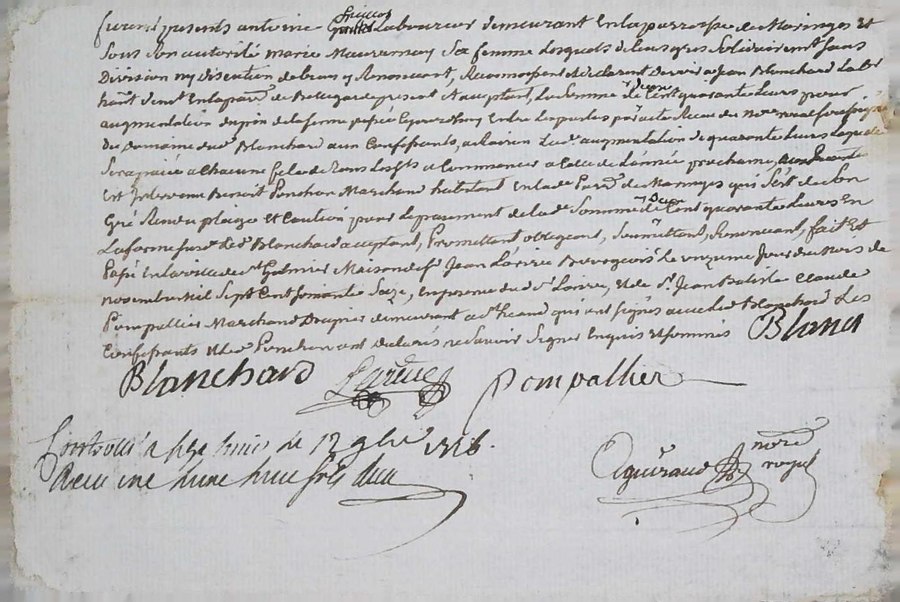 furent présents antoine Laboureur demeurant En la parroisse de Maringes Et
sous son autorité marie sa femme Lesquels de leurs gré solidairemt sans
Division ny discution de biens y Renoncant, Reconnoissent & declarent Devoir a Jean Blanchard Labr
habitt En la parse de Bellegarde present & acceptant, La somme de Cent quarante Livres pour
augmentation du prix de la ferme passée Entre Les parties par acte Recu du nore
du Domaine dud. Blanchard aux Confessants, Lad. augmentation de quarante Livres
sera païée a Chacune fete de Tous Les Sts a Commencer a Celle de L'année prochaine,
Est Intervenu Benoit Ponchon Marchand habitant En lad. Parse de Maringes qui s'est de son
Gré Rendu plaige Et Caution pour Le paiement de lad. somme de Cent quarante Livres En
La forme sus Led. Blanchard acceptant, Promettant, obligeant, soumettant, Renoncant, fait Et
Passé En la ville de St Galmier Maison de Sr Jean Larive Bourgeois Le onzieme Jour du Mois de
novembre mil Sept Cent soixante Seize, En presence du d. Sr Larive, & de Sr Jean Batiste Claude
Pompallier Marchand Drapier demeurant a qui ont signés avec Led. Blanchard Les
Confessants & led. Ponchon ont declarés ne Savoir Signer Enquis & sommés
Blanch
Blanchard Larive Pompallier
Controllé a le 12 9bre 1776.
Recu une livre huit sols
aguiraud nore royal